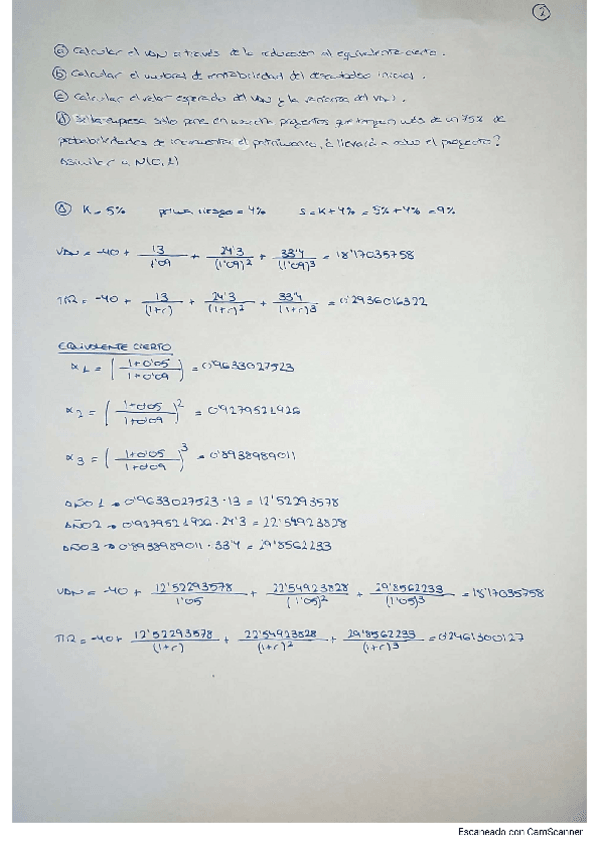 1
a) Calcular el VAN a través de la reducción al equivalente cierto.
b) Calcular el umbral de rentabilidad del desembolso inicial.
c) Calcular el valor esperado del VAN y la varianza del VAN.
d) Si la empresa sólo pone en marcha proyectos que tengan más de un 75% de
probabilidades de incrementar el patrimonio, ¿llevará a cabo el proyecto?
Asimilar a N(0,1)
a) K = 5% prima riesgo = 4% s = K + 4% = 5% + 4% = 9%
VAN = -40 + 13/1'09 + 24'3/(1'09)^2 + 33'4/(1'09)^3 = 18'17035758
TIR = -40 + 13/(1+r) + 24'3/(1+r)^2 + 33'4/(1+r)^3 = 0'2936016322
EQUIVALENTE CIERTO
α1 = (1+0'05/1+0'09) = 0'9633027523
α2 = (1+0'05/1+0'09)^2 = 0'9279521926
α3 = (1+0'05/1+0'09)^3 = 0'8938989011
AÑO 1 → 0'9633027523 · 13 = 12'52293578
AÑO 2 → 0'9279521926 · 24'3 = 22'54923828
AÑO 3 → 0'8938989011 · 33'4 = 29'8562233
VAN = -40 + 12'52293578/1'05 + 22'54923828/(1'05)^2 + 29'8562233/(1'05)^3 = 18'17035758
TIR = -40 + 12'52293578/(1+r) + 22'54923828/(1+r)^2 + 29'8562233/(1+r)^3 = 0'2461300127
Escaneado con CamScanner